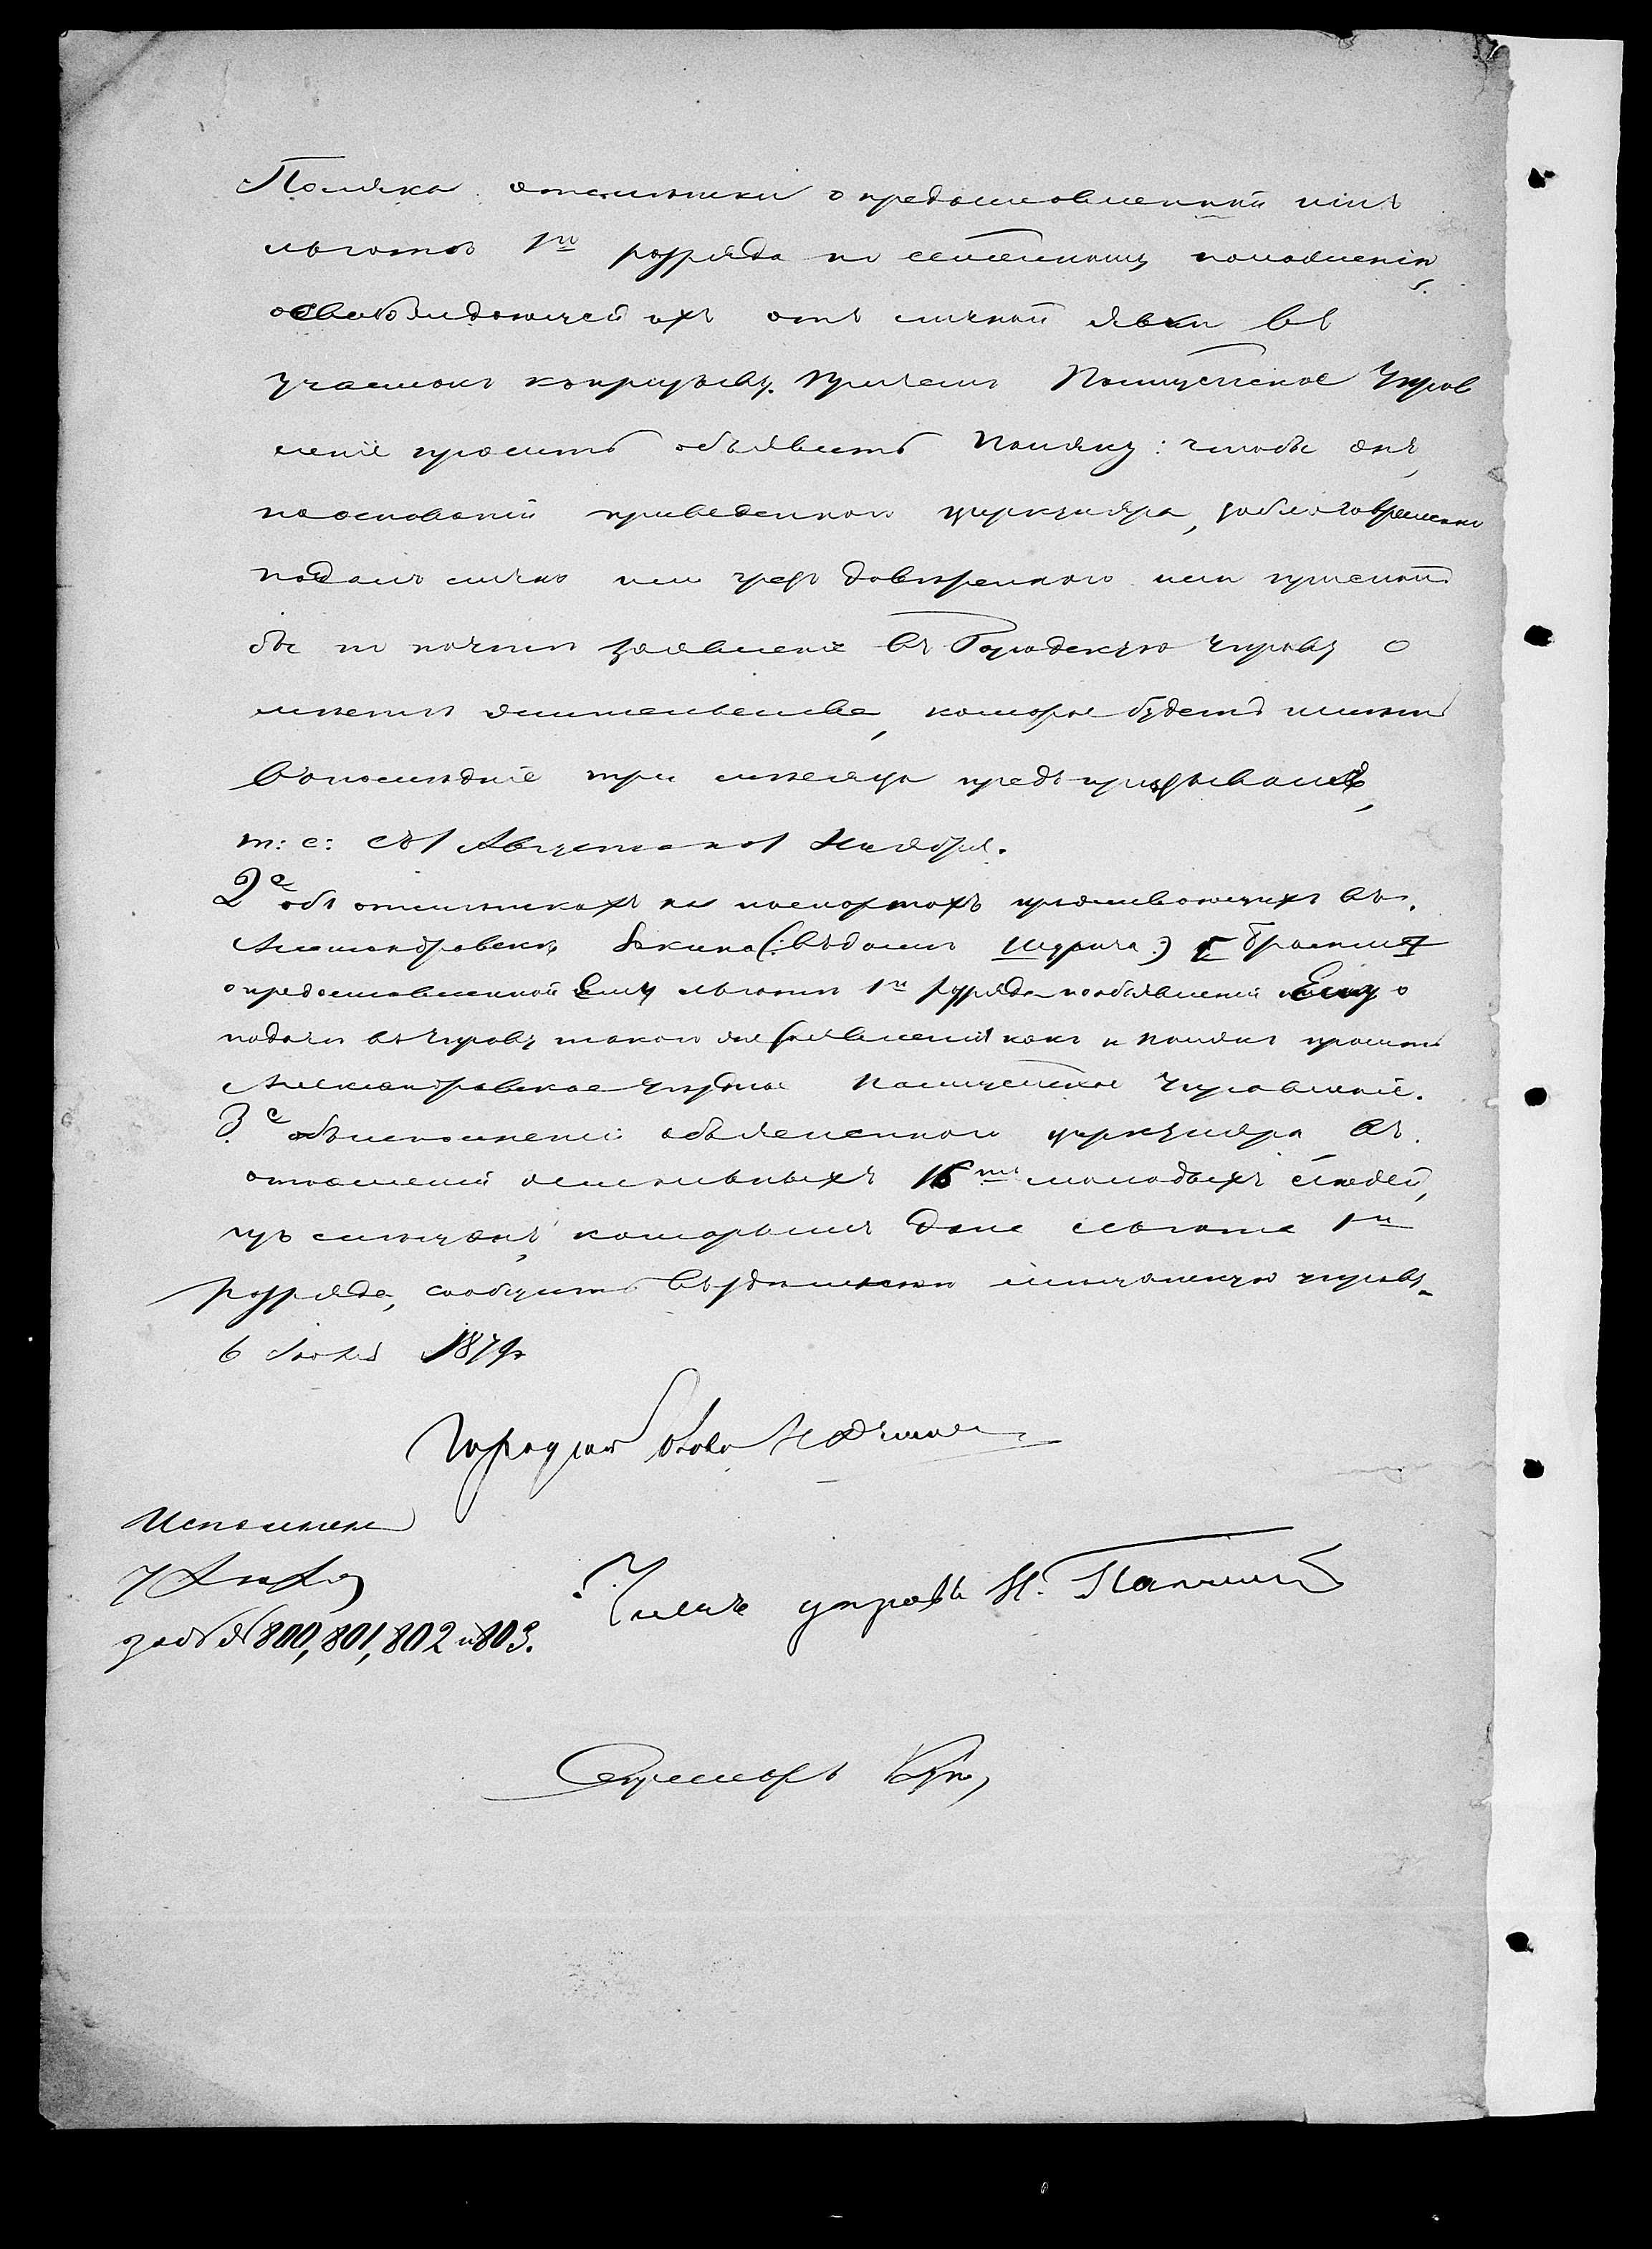 Поляка отмѣтки о предоставленной имъ
льготѣ 1го разряда по семейному положенію,
освобождающей ихъ отъ личной явки въ
участокъ къ призыву. Причемъ Полицейское Управ
леніе проситъ объявить Поляку: чтобы онъ,
на основаніи приведеннаго циркуляра, заблаговременно
подалъ лично или чрезъ довѣреннаго или прислалъ
бы по почтѣ заявленіе въ Городскую Управу о
мѣстѣ жительства, которое будетъ имѣть
въ послѣдніе три мѣсяца предъ призывомъ,
т: е: съ 1 Августа по 1 Ноября.
2е объ отмѣткахъ на паспортахъ проживающихъ въ
Александровскѣ (: въ домѣ :)
о предоставленной Ему льготѣ 1го разряда и объявленіи Ему о
подачѣ въ Управу такого же заявленія какъ и Полякъ проситъ
Александровское Уѣздное Полицейское Управленіе.
3е объ исполненіи объясненнаго циркуляра въ
отношеніи остальныхъ 16ти молодыхъ людей,
изъ мѣщанъ, которымъ дана льгота 1го
разряда, сообщить въ мѣщанскую управу.
6 Іюля 1879г
Городской Голова
Исполнено
7 Іюля
за №№ 800, 801, 802 и 803.
Членъ управы Н.
Секретарь